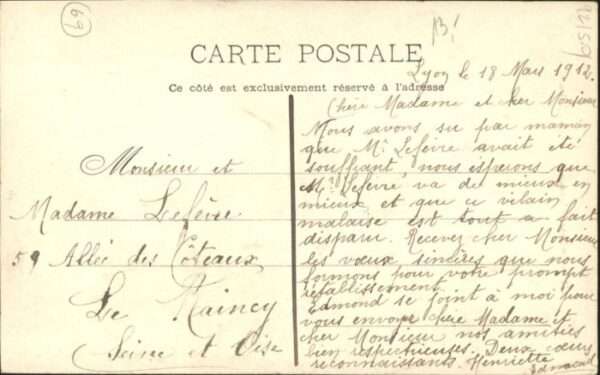 69
B!
CARTE POSTALE
Ce côté est exclusivement réservé à l'adresse
Lyon le 18 Mars 1912.
Chère Madame et cher Monsieur
Nous avons su par maman
que Mr Lefèvre avait été
souffrant, nous espérons que
Mr Lefèvre va de mieux en
mieux et que ce vilain
malaise est tout a fait
disparu. Recevez cher Monsieur
les vœux sincères que nous
formons pour votre prompt
rétablissement.
Edmond se joint à moi pour
vous envoyer chère Madame et
cher Monsieur nos amitiés
bien respectueuses. Deux cœurs
reconnaissants. Henriette
Edmond
Monsieur et
Madame Lefèvre
59 Allée des Côteaux
Le Raincy
Seine et Oise